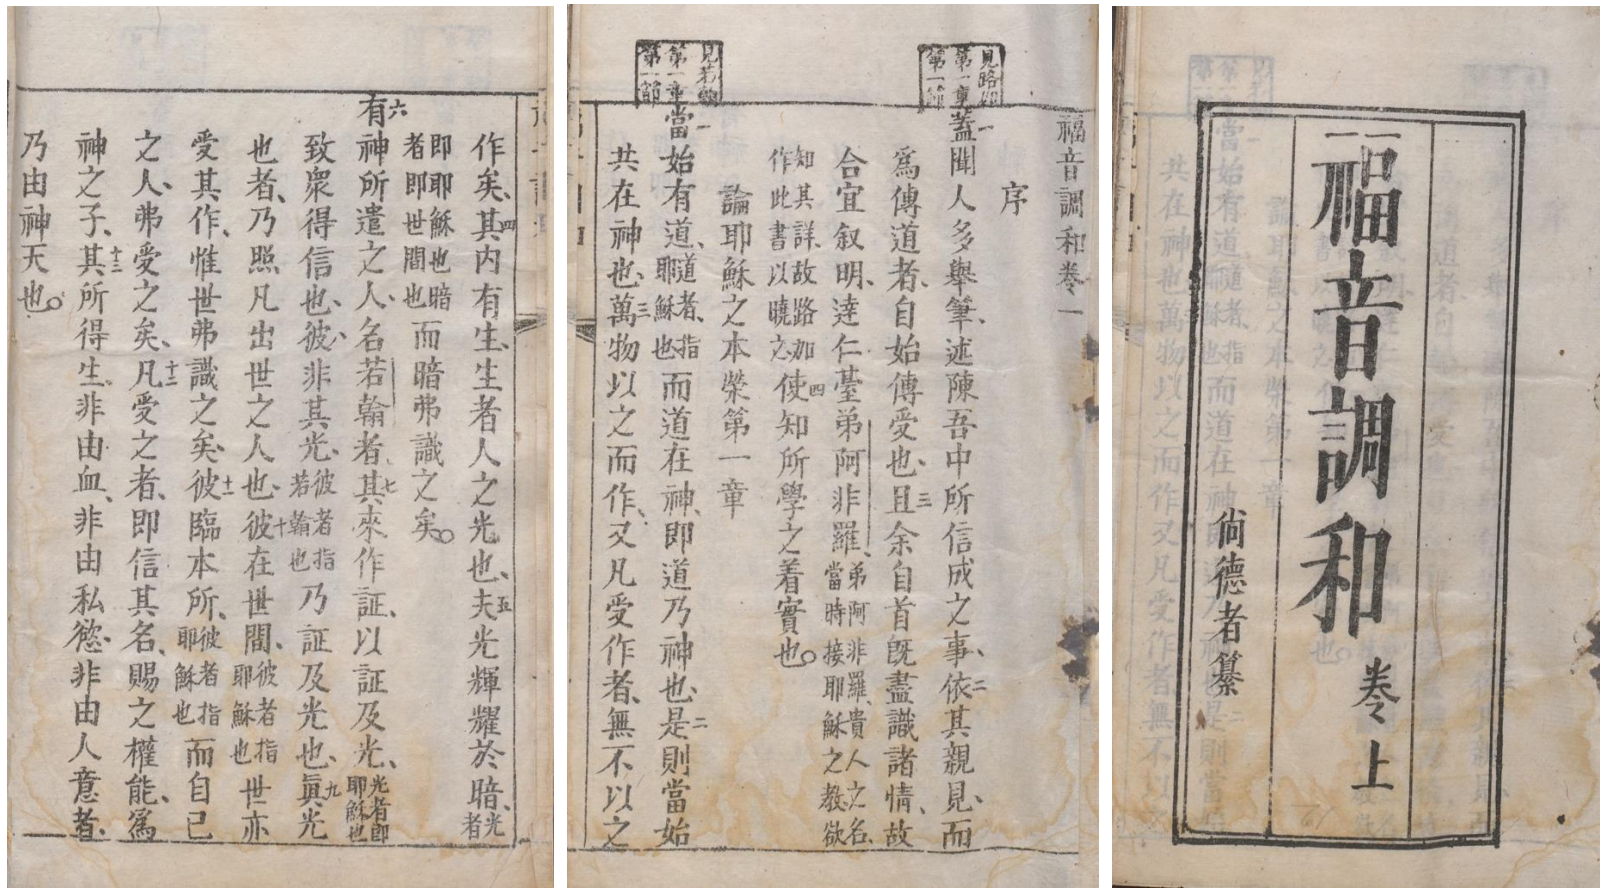 福音調和
卷上
尙德者纂
福音調和卷一
序
見路加
第一章
第一節
一蓋聞人多舉筆、述陳吾中所信成之事、二依其親見、而
爲傳道者、自始傳受也、三且余自首旣盡識諸情、故
合宜叙明、達仁臺弟阿非羅、弟阿非羅、貴人之名、當時接耶穌之教、欲
知其詳、故路加作此書以曉之、四使知所學之着實也。
論耶穌之本榮第一章
見若翰
第一章
第一節
一當始有道、道者、指耶穌也而道在神、即道乃神也、二是則當始
共在神也、三萬物以之而作、又凡受作者、無不以之
作矣、四其內有生、生者人之光也、五夫光輝耀於暗、光者
即耶穌也暗者即世間也而暗弗識之矣。
六有神所遣之人、名若翰者、七其來作証、以証及光、光者即耶穌也
致衆得信也、八彼非其光、彼者指若翰也乃証及光也、九眞光
也者、乃照凡出世之人也、十彼在世間、彼者指耶穌也世亦
受其作、惟世弗識之矣、十一彼臨本所、彼者指耶穌也而自己
之人、弗受之矣、十二凡受之者、即信其名、賜之權能、爲
神之子、十三其所得生、非由血、非由私慾、非由人意者、
乃由神天也。